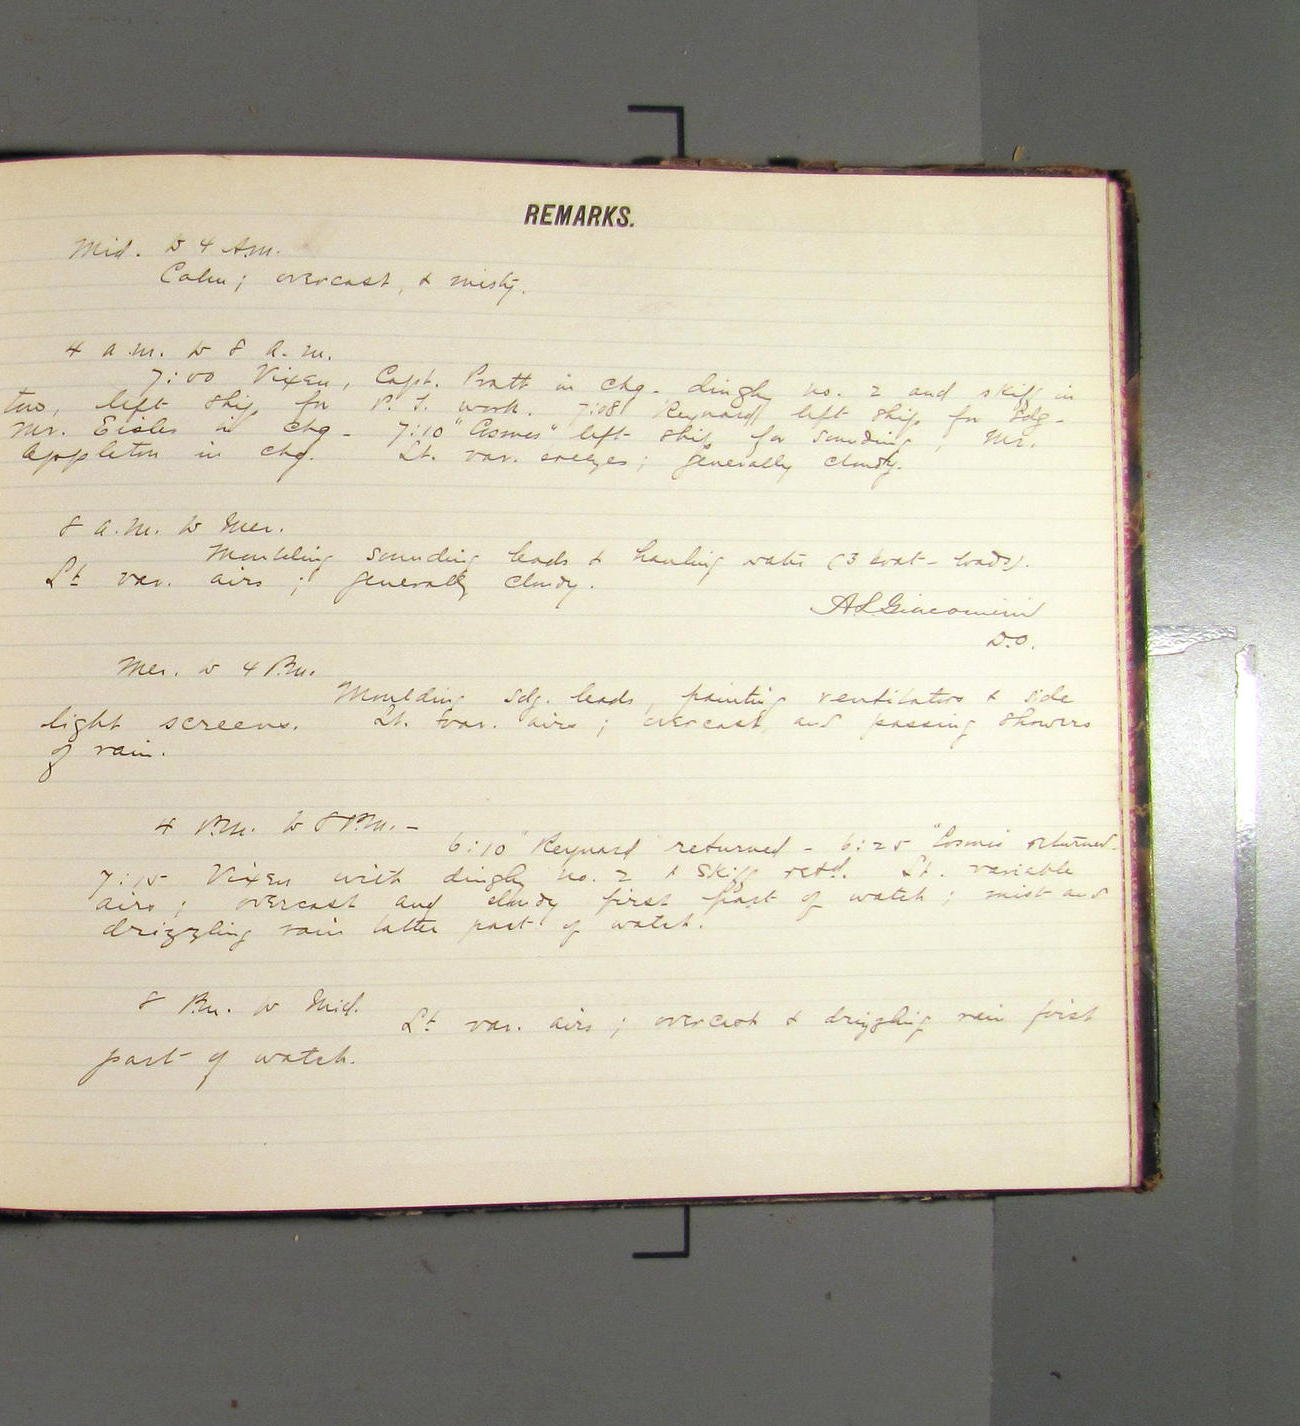 REMARKS.
Mid. to 4 A.m.
Calm; overcast, & misty.
4 a.m. to 8 a.m.
7:00 Vixen, Capt. Pratt in chg. dinghy no. 2 and skiff in
tow, left ship for P. T. work. 7:08 "Reynard" left ship for Sdg.
Mr. Eisler in chg. 7:10 "Cosmos" left ship for sounding, Mr.
Appleton in chg. Lt. var. breezes; generally cloudy.
8 a.m. to Mer.
Moulding sounding leads & hauling water (3 boat-loads).
Lt var. airs; generally cloudy.
A L Giacomini
D.O.
Mer. to 4 P.m.
Moulding sdg. leads, painting ventilators & side
light screens. Lt. var. airs; overcast and passing showers
of rain.
4 P.m. to 8 P.m.-
6:10 "Reynard" returned - 6:25 "Cosmos" returned.
7:15 Vixen with dinghy no. 2 & skiff retd. Lt. variable
airs; overcast and cloudy first part of watch; mist and
drizzling rain latter part of watch.
8 P.m. to Mid.
Lt var. airs; overcast & drizzling rain first
part of watch.